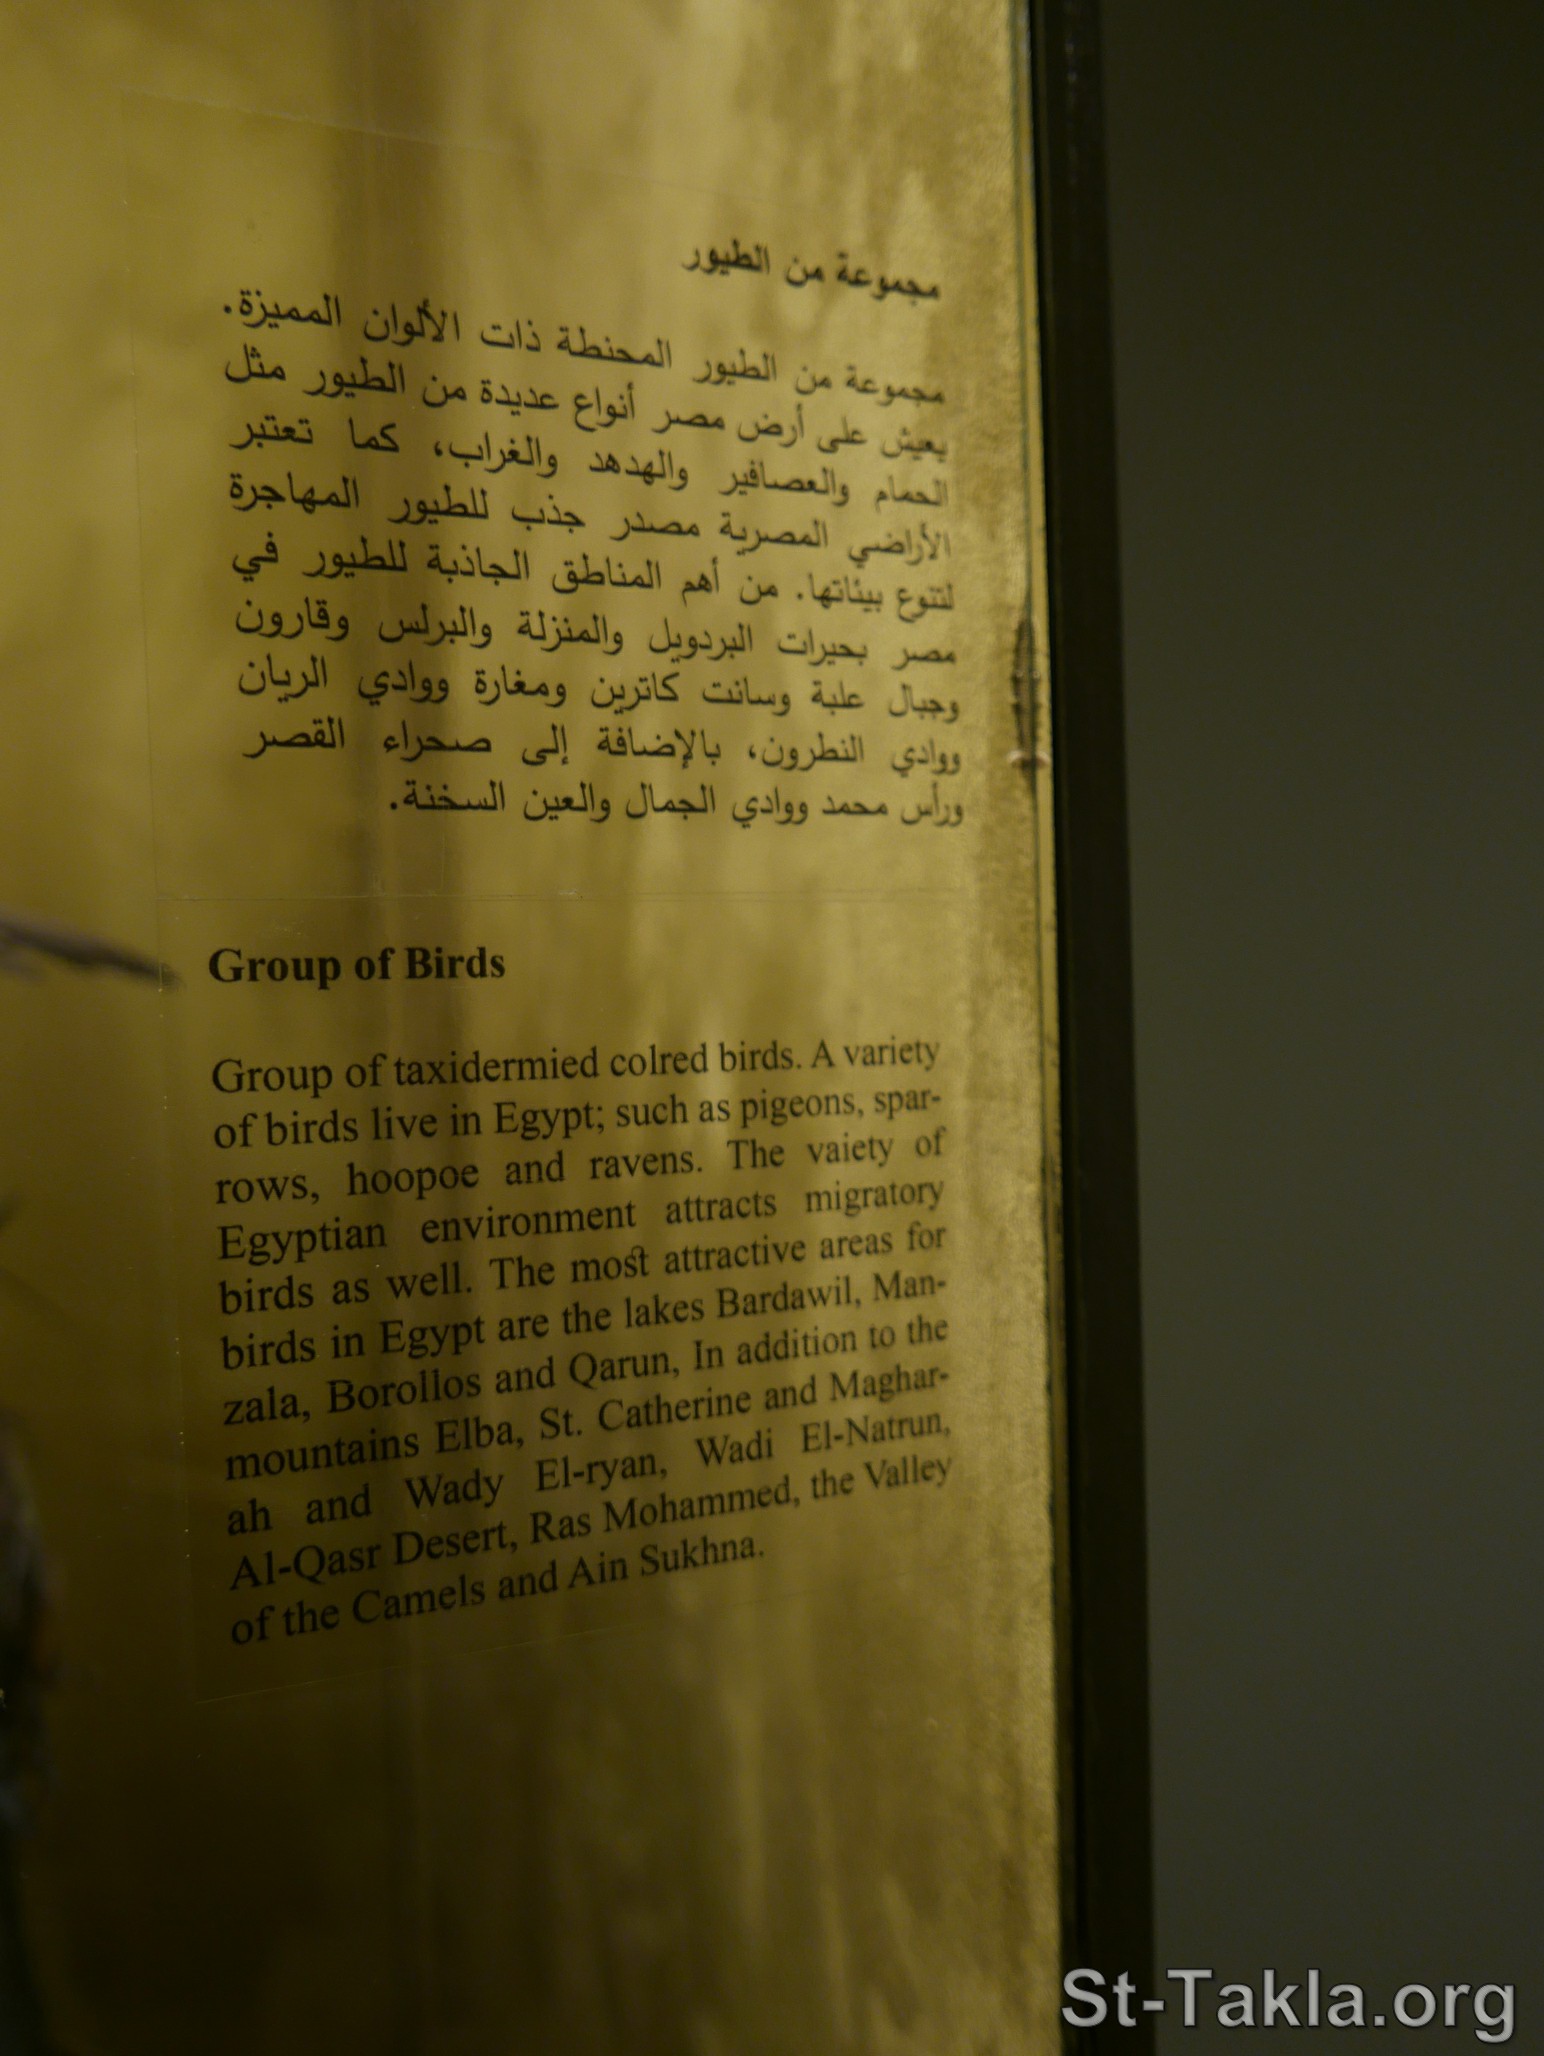 مجموعة من الطيور
مجموعة من الطيور المحنطة ذات الألوان المميزة.
يعيش على أرض مصر أنواع عديدة من الطيور مثل
الحمام والعصافير والهدهد والغراب، كما تعتبر
الأراضي المصرية مصدر جذب للطيور المهاجرة
لتنوع بيئاتها. من أهم المناطق الجاذبة للطيور في
مصر بحيرات البردويل والمنزلة والبرلس وقارون
وجبال علبة وسانت كاترين ومغارة ووادي الريان
ووادي النطرون، بالإضافة إلى صحراء القصر
ورأس محمد ووادي الجمال والعين السخنة.
Group of Birds
Group of taxidermied colred birds. A variety
of birds live in Egypt; such as pigeons, spar-
rows, hoopoe and ravens. The vaiety of
Egyptian environment attracts migratory
birds as well. The most attractive areas for
birds in Egypt are the lakes Bardawil, Man-
zala, Borollos and Qarun, In addition to the
mountains Elba, St. Catherine and Maghar-
ah and Wady El-ryan, Wadi El-Natrun,
Al-Qasr Desert, Ras Mohammed, the Valley
of the Camels and Ain Sukhna.
St-Takla.org